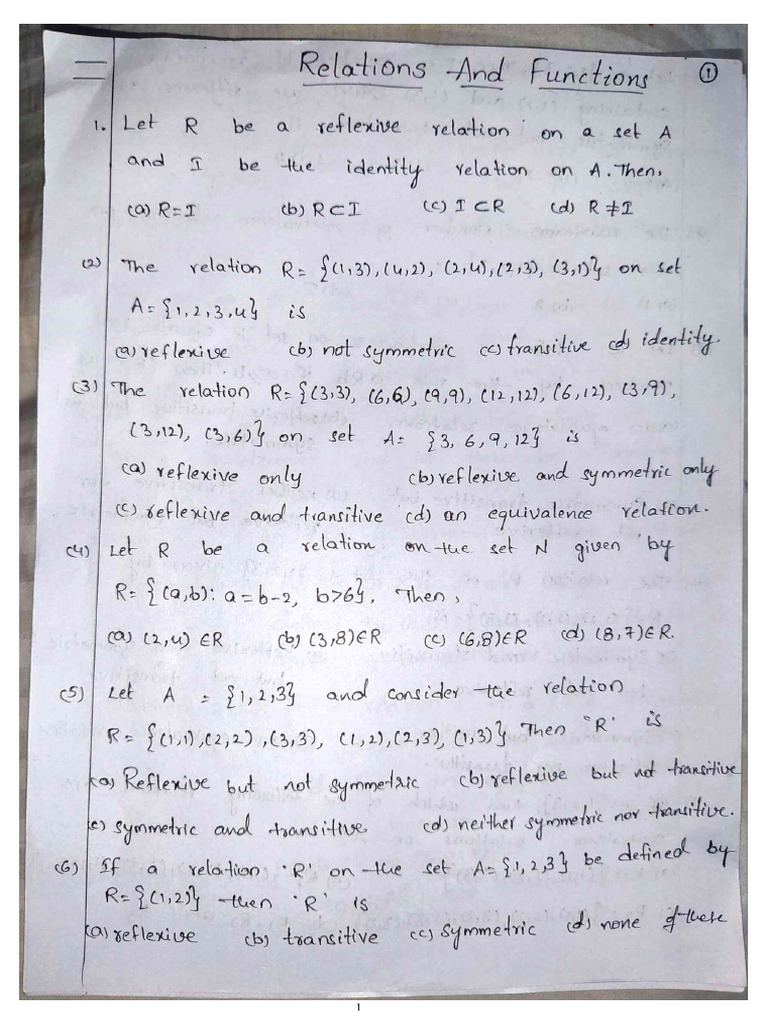 Relations And Functions ①
1. Let R be a reflexive relation on a set A
and I be the identity relation on A. Then,
(a) R=I (b) R⊂I (c) I⊂R (d) R≠I
(2) The relation R= {(1,3), (4,2), (2,4), (2,3), (3,1)} on set
A= {1,2,3,4} is
(a) reflexive (b) not symmetric (c) transitive (d) identity.
(3) The relation R= {(3,3), (6,6), (9,9), (12,12), (6,12), (3,9),
(3,12), (3,6)} on set A= {3, 6, 9, 12} is
(a) reflexive only (b) reflexive and symmetric only
(c) reflexive and transitive (d) an equivalence relation.
(4) Let R be a relation on the set N given by
R= {(a,b): a=b-2, b>6}. Then,
(a) (2,4) ∈R (b) (3,8)∈R (c) (6,8)∈R (d) (8,7)∈R.
(5) Let A = {1,2,3} and consider the relation
R= {(1,1),(2,2),(3,3), (1,2),(2,3),(1,3)} Then 'R' is
(a) Reflexive but not symmetric (b) reflexive but not transitive
(c) symmetric and transitive (d) neither symmetric nor transitive.
(6) If a relation 'R' on the set A= {1,2,3} be defined by
R= {(1,2)} then 'R' is
(a) reflexive (b) transitive (c) symmetric (d) none of these
1